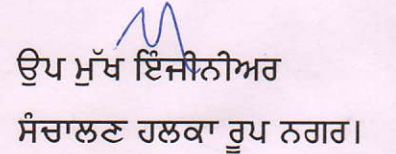 ਉਪ ਮੁੱਖ ਇੰਜੀਨੀਅਰ
ਸੰਚਾਲਣ ਹਲਕਾ ਰੂਪ ਨਗਰ।